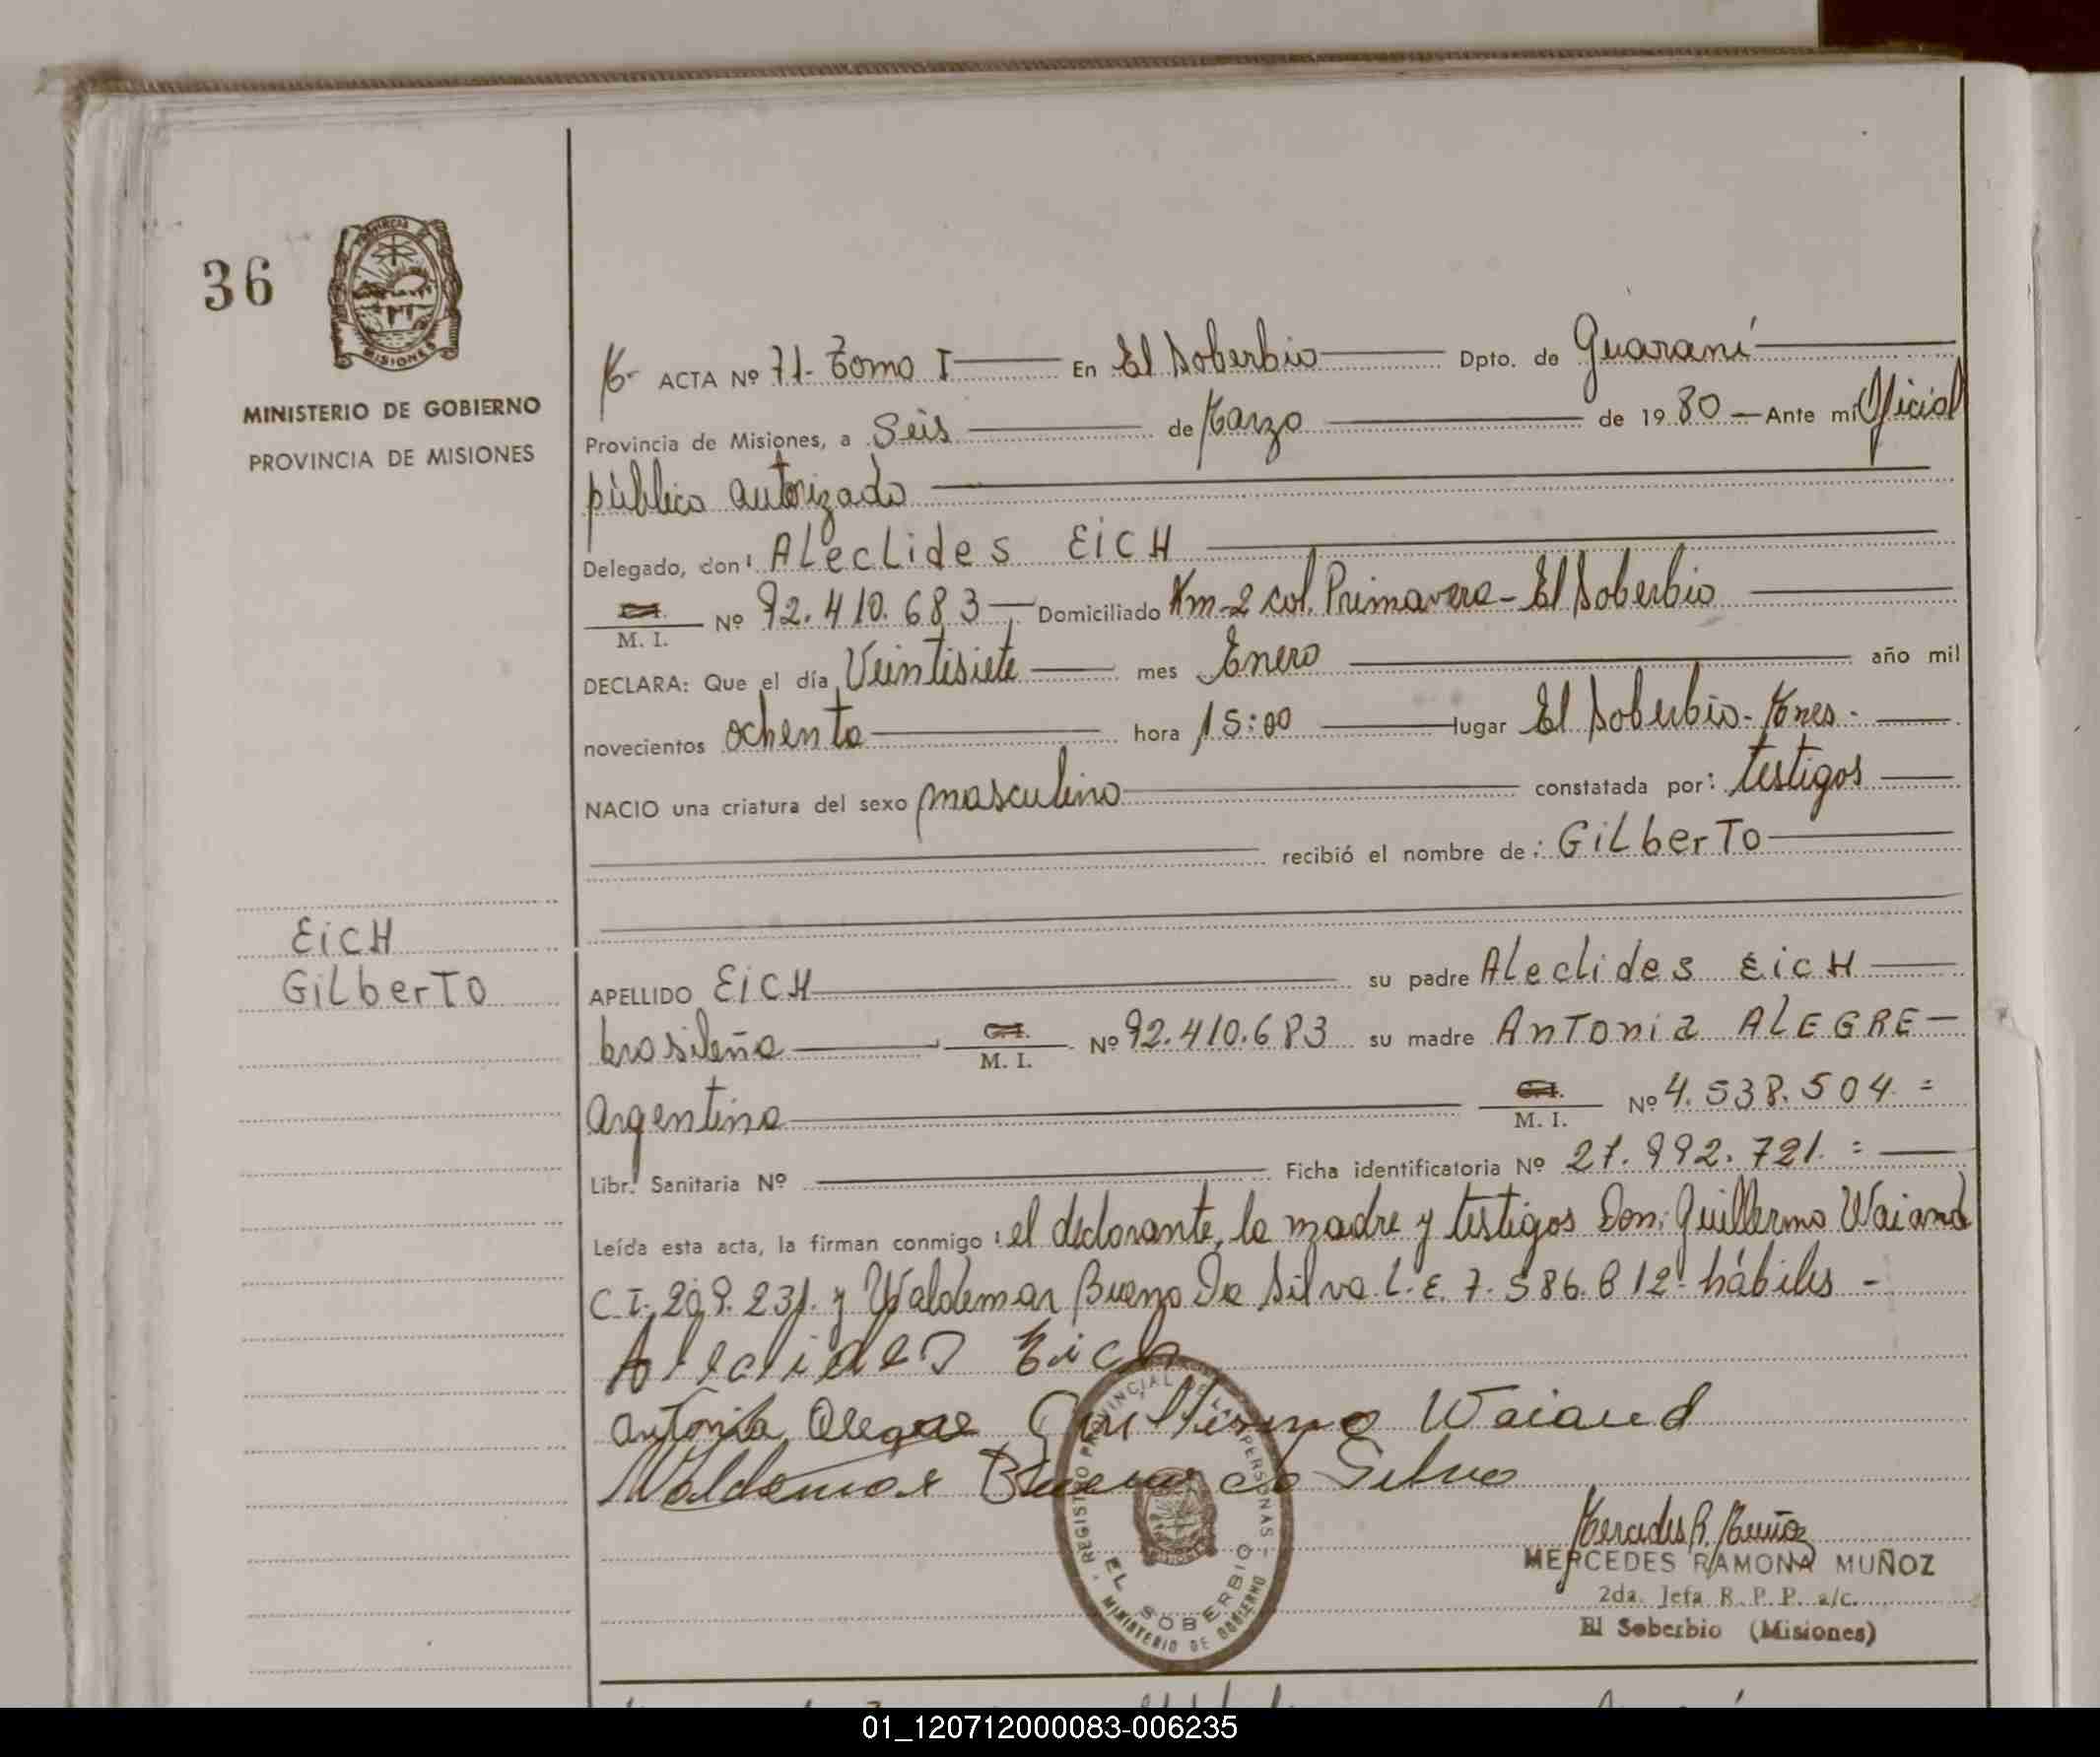 36
PROVINCIA
MISIONES
MINISTERIO DE GOBIERNO
PROVINCIA DE MISIONES
M- ACTA Nº 71- Tomo I En El Soberbio Dpto. de Guaraní
Provincia de Misiones, a Seis de Marzo de 1980 Ante mí Oficial
público autorizado
Delegado, don: ALecLides EicH
C.I. M. I. Nº 92.410.683 Domiciliado Km-2 col. Primavera - El Soberbio
DECLARA: Que el día Veintisiete mes Enero año mil
novecientos ochenta hora 15:00 lugar El Soberbio - Mnes.-
NACIO una criatura del sexo masculino constatada por: testigos
recibió el nombre de: GiLberTo
EicH
GiLberTo
APELLIDO EicH su padre ALeclides EicH
brasileña C.I. M. I. Nº 92.410.683 su madre AnTonia ALEGRE-
Argentina C.I. M. I. Nº 4.538.504 =
Libr. Sanitaria Nº Ficha identificatoria Nº 27.992.721. =
Leída esta acta, la firman conmigo: el declarante, la madre y testigos Don: Guillermo Waiand
C.I. 209.231. y Waldemar Bueno Da Silva L.E. 7.586.812- hábiles -
Aleclides Eich
Antonia Alegre Guillermo Waiand
Waldemar Bueno da Silva
REGISTRO PROVINCIAL DE LAS PERSONAS
EL SOBERBIO
MINISTERIO DE GOBIERNO
Mercedes R. Muñoz
MERCEDES RAMONA MUÑOZ
2da. Jefa R. P. P. a/c.
El Soberbio (Misiones)
01_120712000083-006235